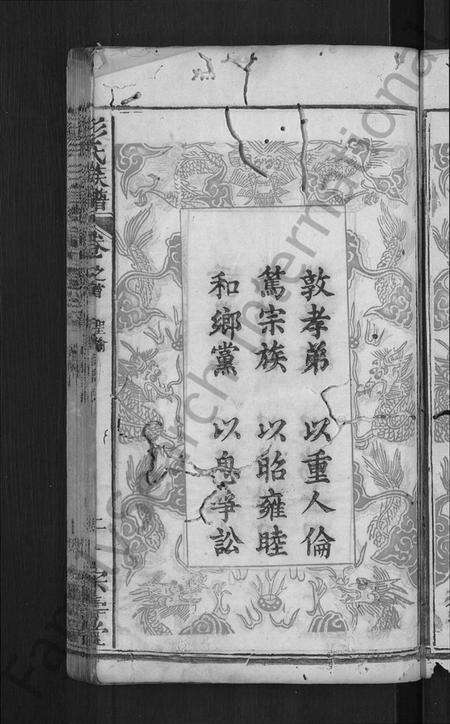 敦孝弟 以重人倫
篤宗族 以昭雍睦
和鄉黨 以息爭訟
彭氏族譜 卷之首 聖諭
FamilySearch International